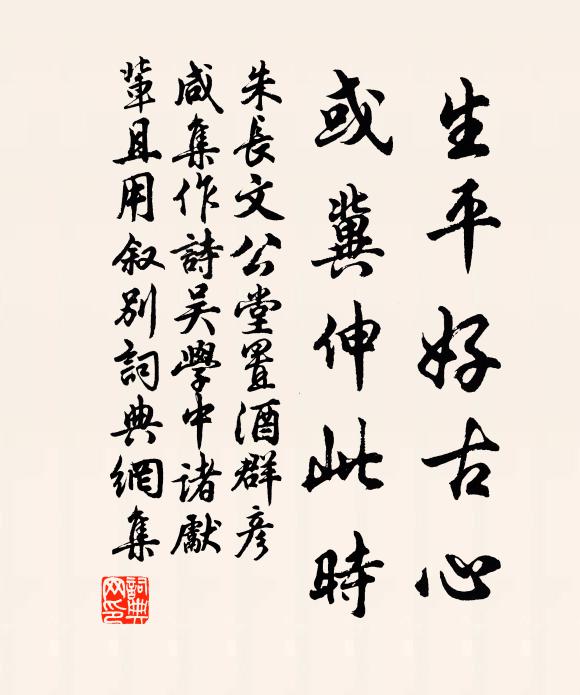 生平好古心
或冀伸此時
朱長文公堂置酒群彦
咸集作詩吴學中诸獻
輩且用叙别詞典網集
詞典
网印